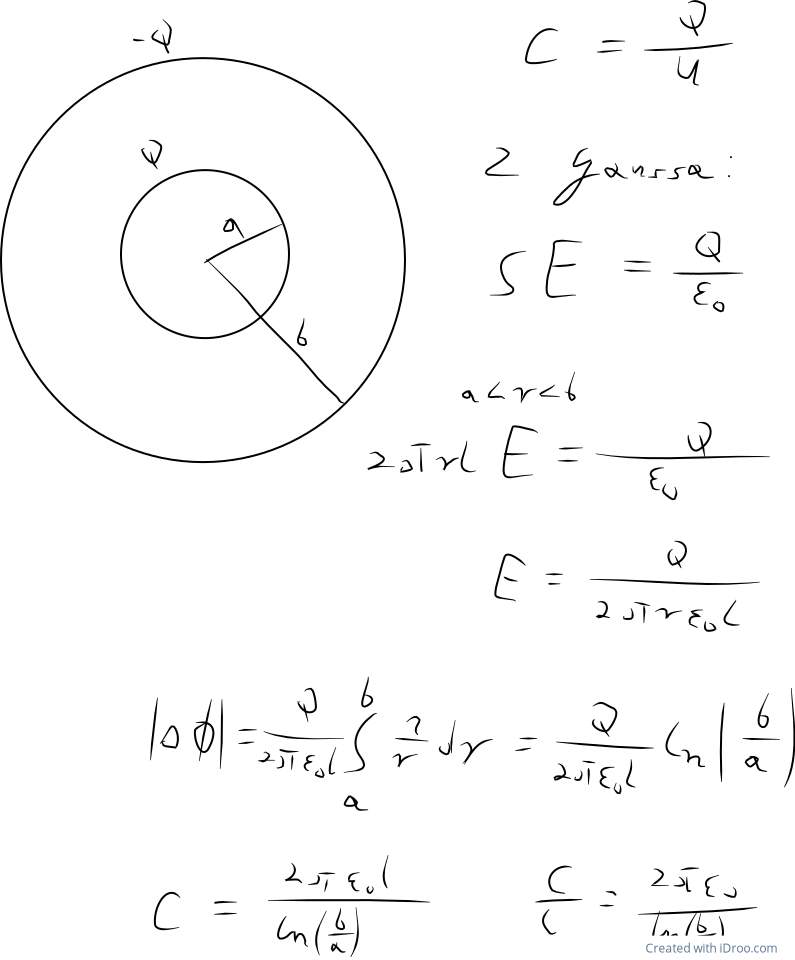 -Q
Q
a
b
C = Q/U
Z Gaussa:
SE = Q/ε₀
a<r<b
2πrl E = Q/ε₀
E = Q/2πrε₀l
|Δϕ| = Q/2πε₀l ∫ₐᵇ 1/r dr = Q/2πε₀l ln(b/a)
C = 2πε₀l/ln(b/a)
C/l = 2πε₀/ln(b/a)
Created with iDroo.com